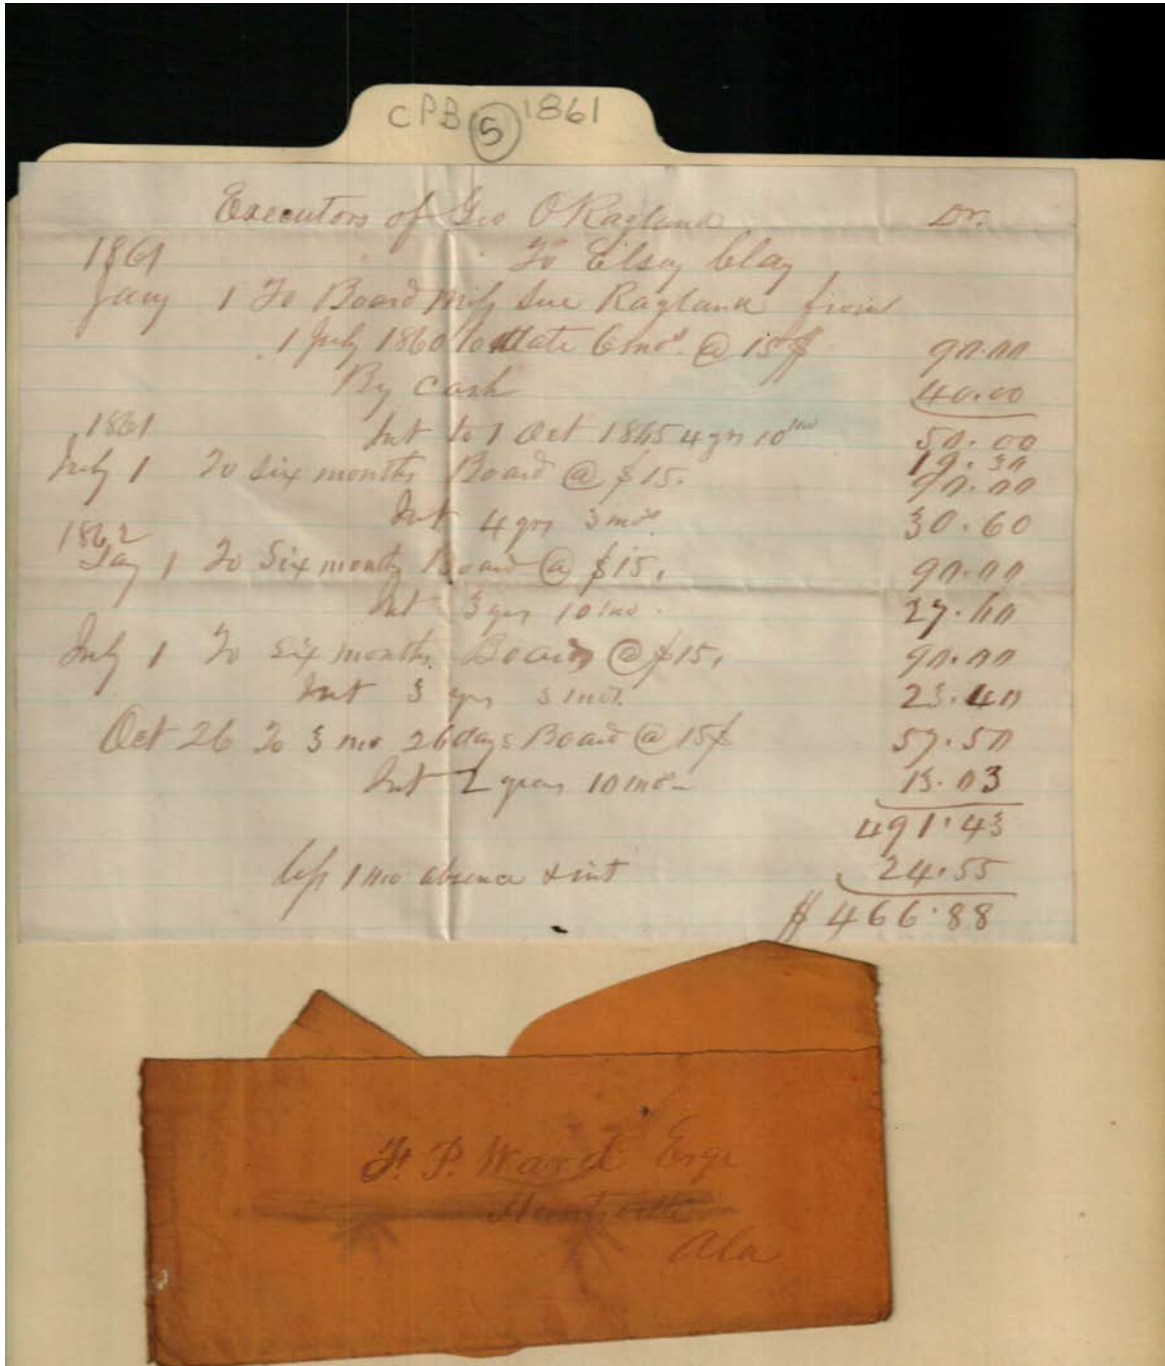 CPB (5) 1861
Executors of Geo O Ragland Dr.
1861 To Elsey Clay
Jany 1 To Board Miss Sue Ragland from
1 July 1860 to date 6 mos. @ 15$ 90.00
By cash 40.00
50.00
1861 Int to 1 Oct 1865 4 yrs 10 mo 19.30
July 1 To six months Board @ $15. 90.00
Int 4 yrs 3 mos. 30.60
1862
Jay 1 To Six months Board @ $15. 90.00
Int 3 yrs 10 mo. 27.60
July 1 To Six months Board @ $15. 90.00
Int 3 yrs 3 mos. 23.40
Oct 26 To 3 mo 26 days Board @ 15$ 57.50
Int 2 years 10 mos 13.03
491.43
less 1 mo absence & int 24.55
$ 466.88
P. Ward Esqr
Huntsville
Ala